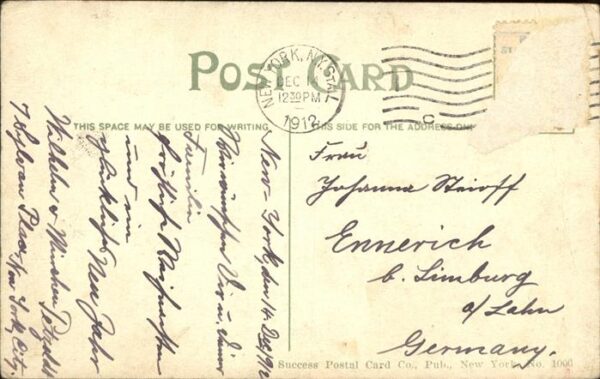 POST CARD
NEW YORK, N.Y. STA.
DEC
12 30 PM
1912
C
THIS SPACE MAY BE USED FOR WRITING
THIS SIDE FOR THE ADDRESS ONLY
New-York, den 14. Dez/12
wünschen Dir u. Deiner
Familie
fröhliche Weihnachten
und ein
glückliches Neu Jahr
Wilhelm &
7 Sylvan Place, New York, City.
Frau
Johanna Steioff
Ennerich
b. Limburg
a/Lahn
Germany.
Success Postal Card Co., Pub., New York. No. 1000